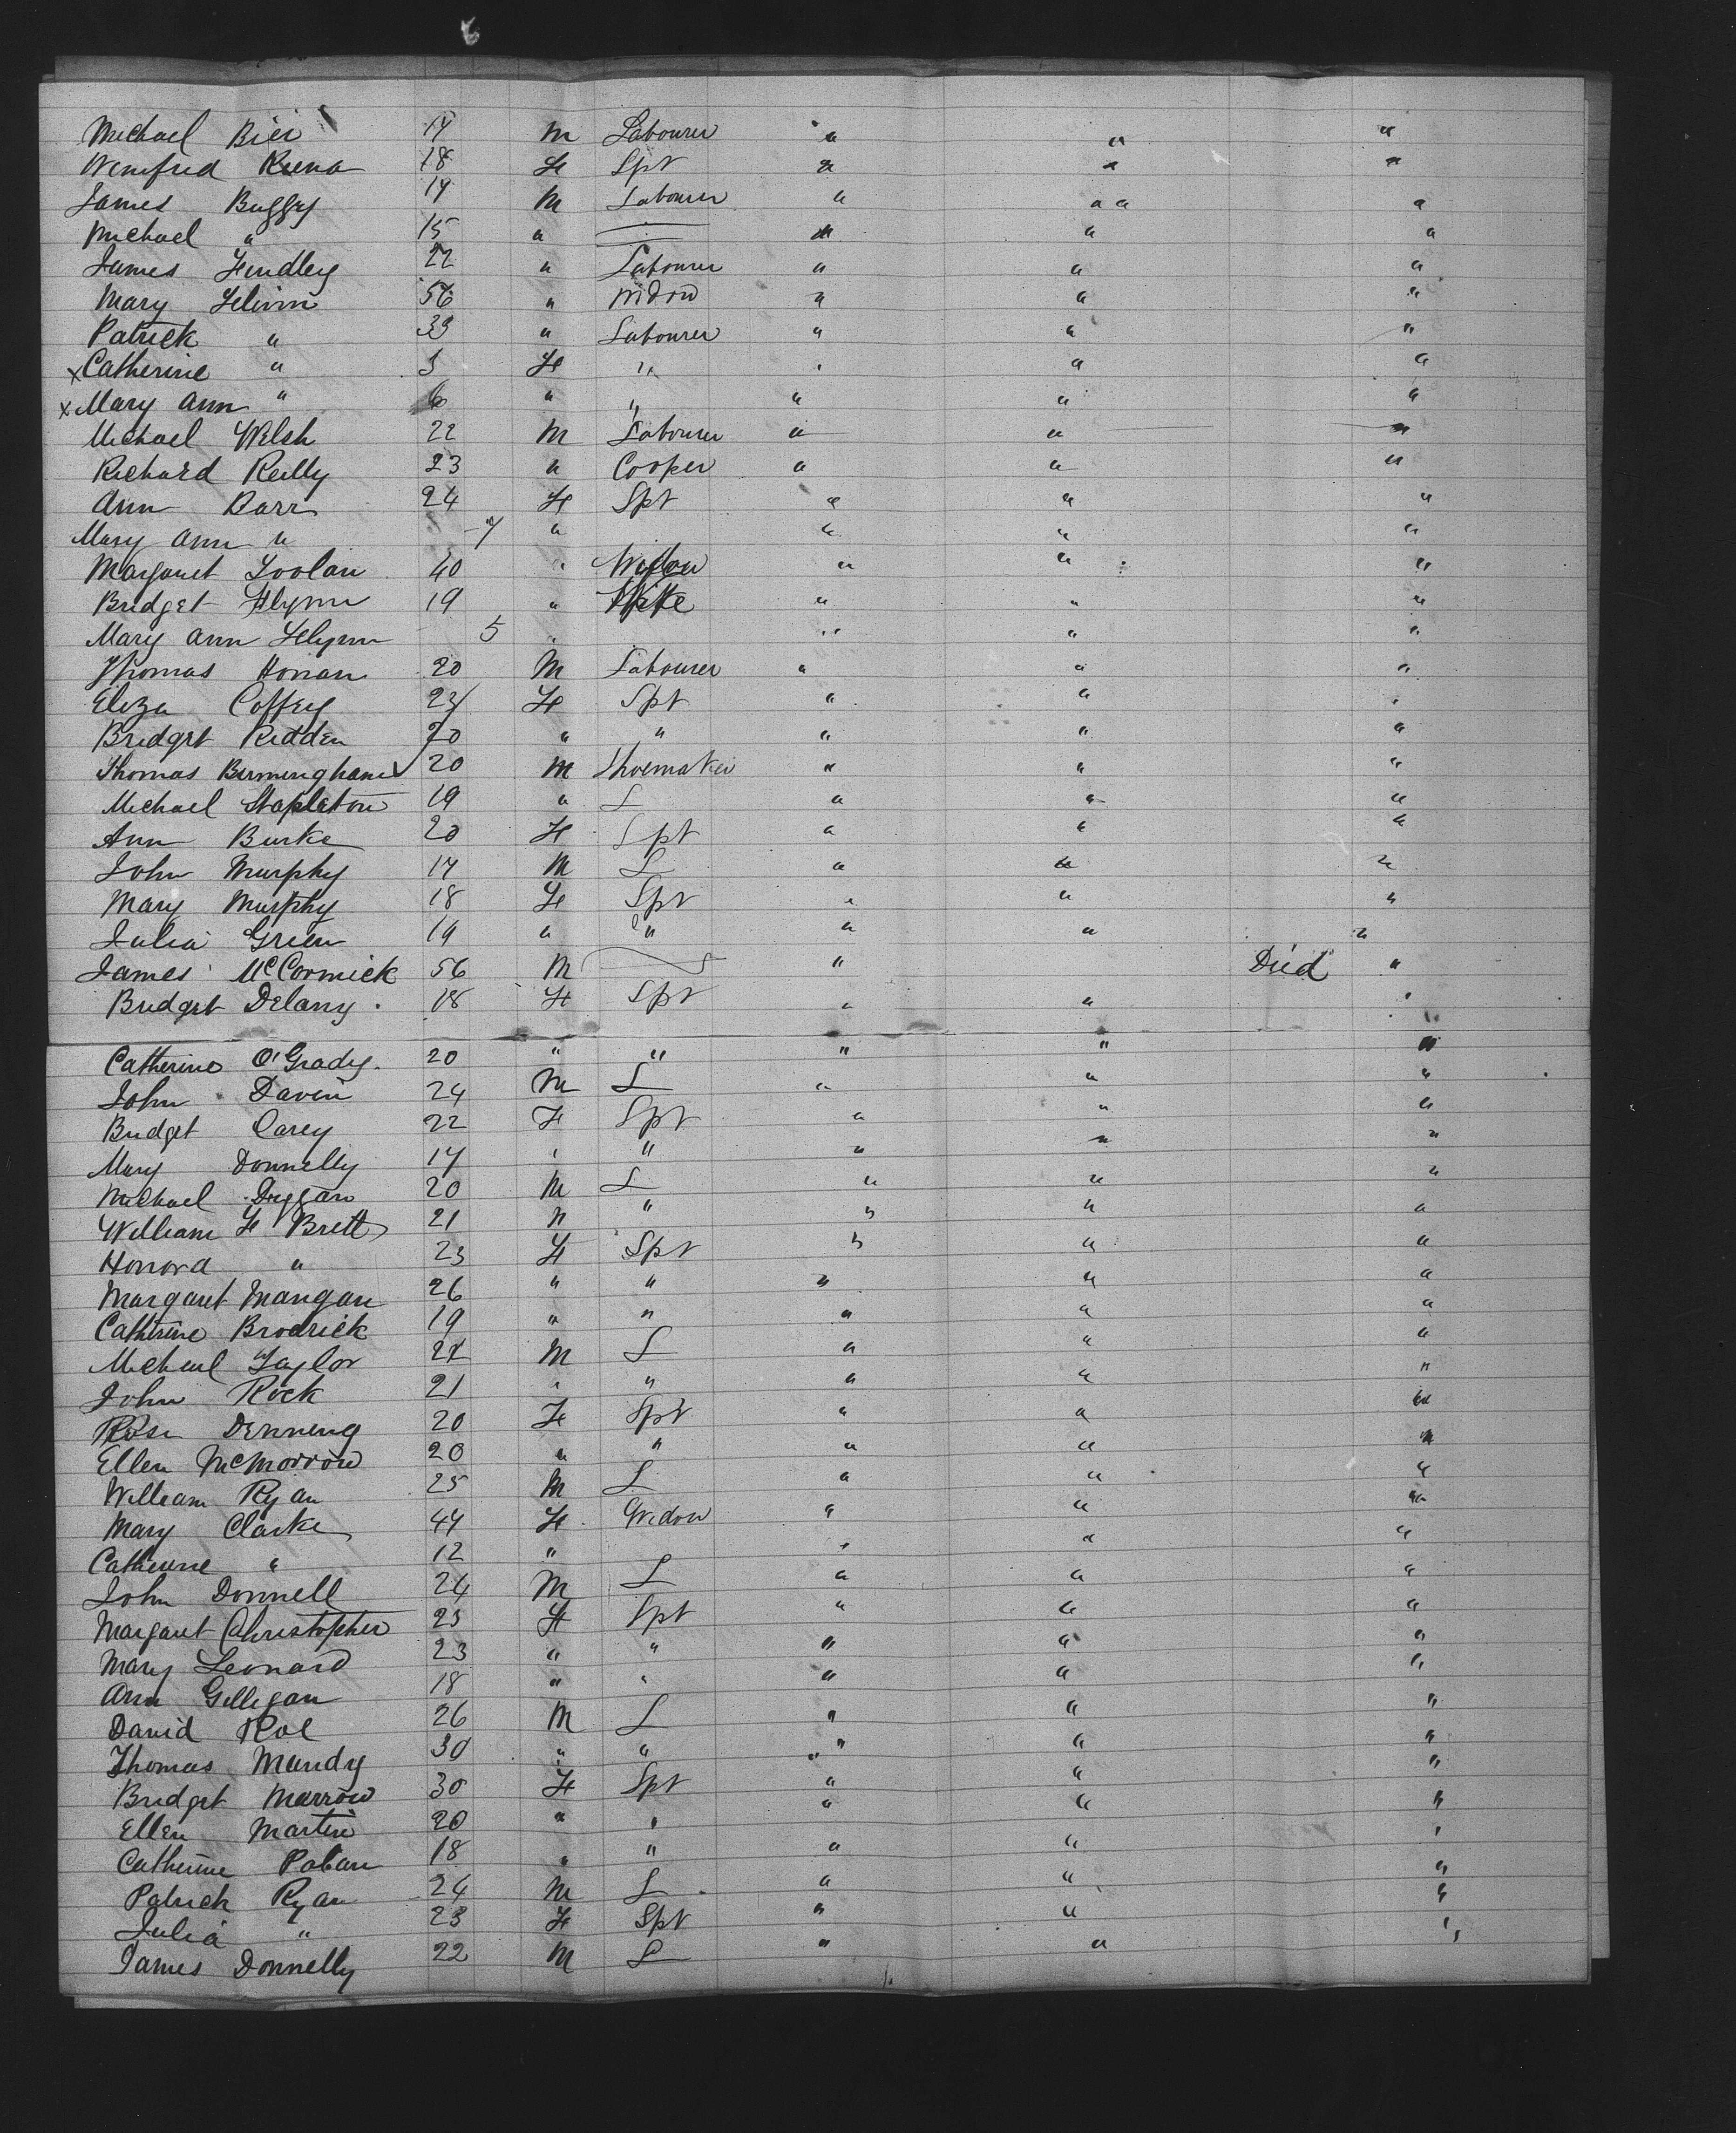 6
Michael Bier 17 M Labourer " " "
Winifred Keena 18 F Spt " " "
James Buggy 17 M Labourer " " " "
Michael " 15 " — " " "
James Findley 22 " Labourer " " "
Mary Flinn 56 " Widow " " "
Patrick " 33 " Labourer " " "
x Catherine " 3 F " " " "
x Mary Ann " 6 " " " " "
Michael Welsh 22 M Labourer " " "
Richard Reilly 23 " Cooper " " "
Ann Barr 24 F Spt " " "
Mary Ann " 7 " " " "
Margaret Toolan 40 " Widow " " "
Bridget Flynn 19 " Wife " " "
Mary Ann Flynn 5 " " " "
Thomas Honan 20 M Labourer " " "
Eliza Coffey 23 F Spt " " "
Bridget Redden 20 " " " " "
Thomas Birmingham 20 M Shoemaker " " "
Michael Stapleton 19 " L " " "
Ann Burke 20 F Spt " " "
John Murphy 17 M L " " "
Mary Murphy 18 F Spt " " "
Julia Green 19 " " " " "
James McCormick 56 M — " Died "
Bridget Delany 18 F Spt " " "
Catherine O'Grady 20 " " " " "
John Davin 24 M L " " "
Bridget Carey 22 F Spt " " "
Mary Donnelly 17 " " " " "
Michael Duggan 20 M L " " "
William F Brett 21 " " " " "
Honora " 23 F Spt " " "
Margaret Mangan 26 " " " " "
Catherine Brodrick 19 " " " " "
Michael Taylor 22 M L " " "
John Rock 21 " " " " "
Rose Denning 20 F Spt " " "
Ellen McMorrow 20 " " " " "
William Ryan 25 M L " " "
Mary Clarke 44 F Widow " " "
Catherine " 12 " " " "
John Donnell 24 M L " " "
Margaret Christopher 23 F Spt " " "
Mary Leonard 23 " " " " "
Ann Gilligan 18 " " " " "
David Roe 26 M L " " "
Thomas Mandy 30 " " " " "
Bridget Marrow 30 F Spt " " "
Ellen Martin 20 " " " " "
Catherine 18 " " " " "
Patrick Ryan 24 M L " " "
Julia " 23 F Spt " " "
James Donnelly 22 M L " "